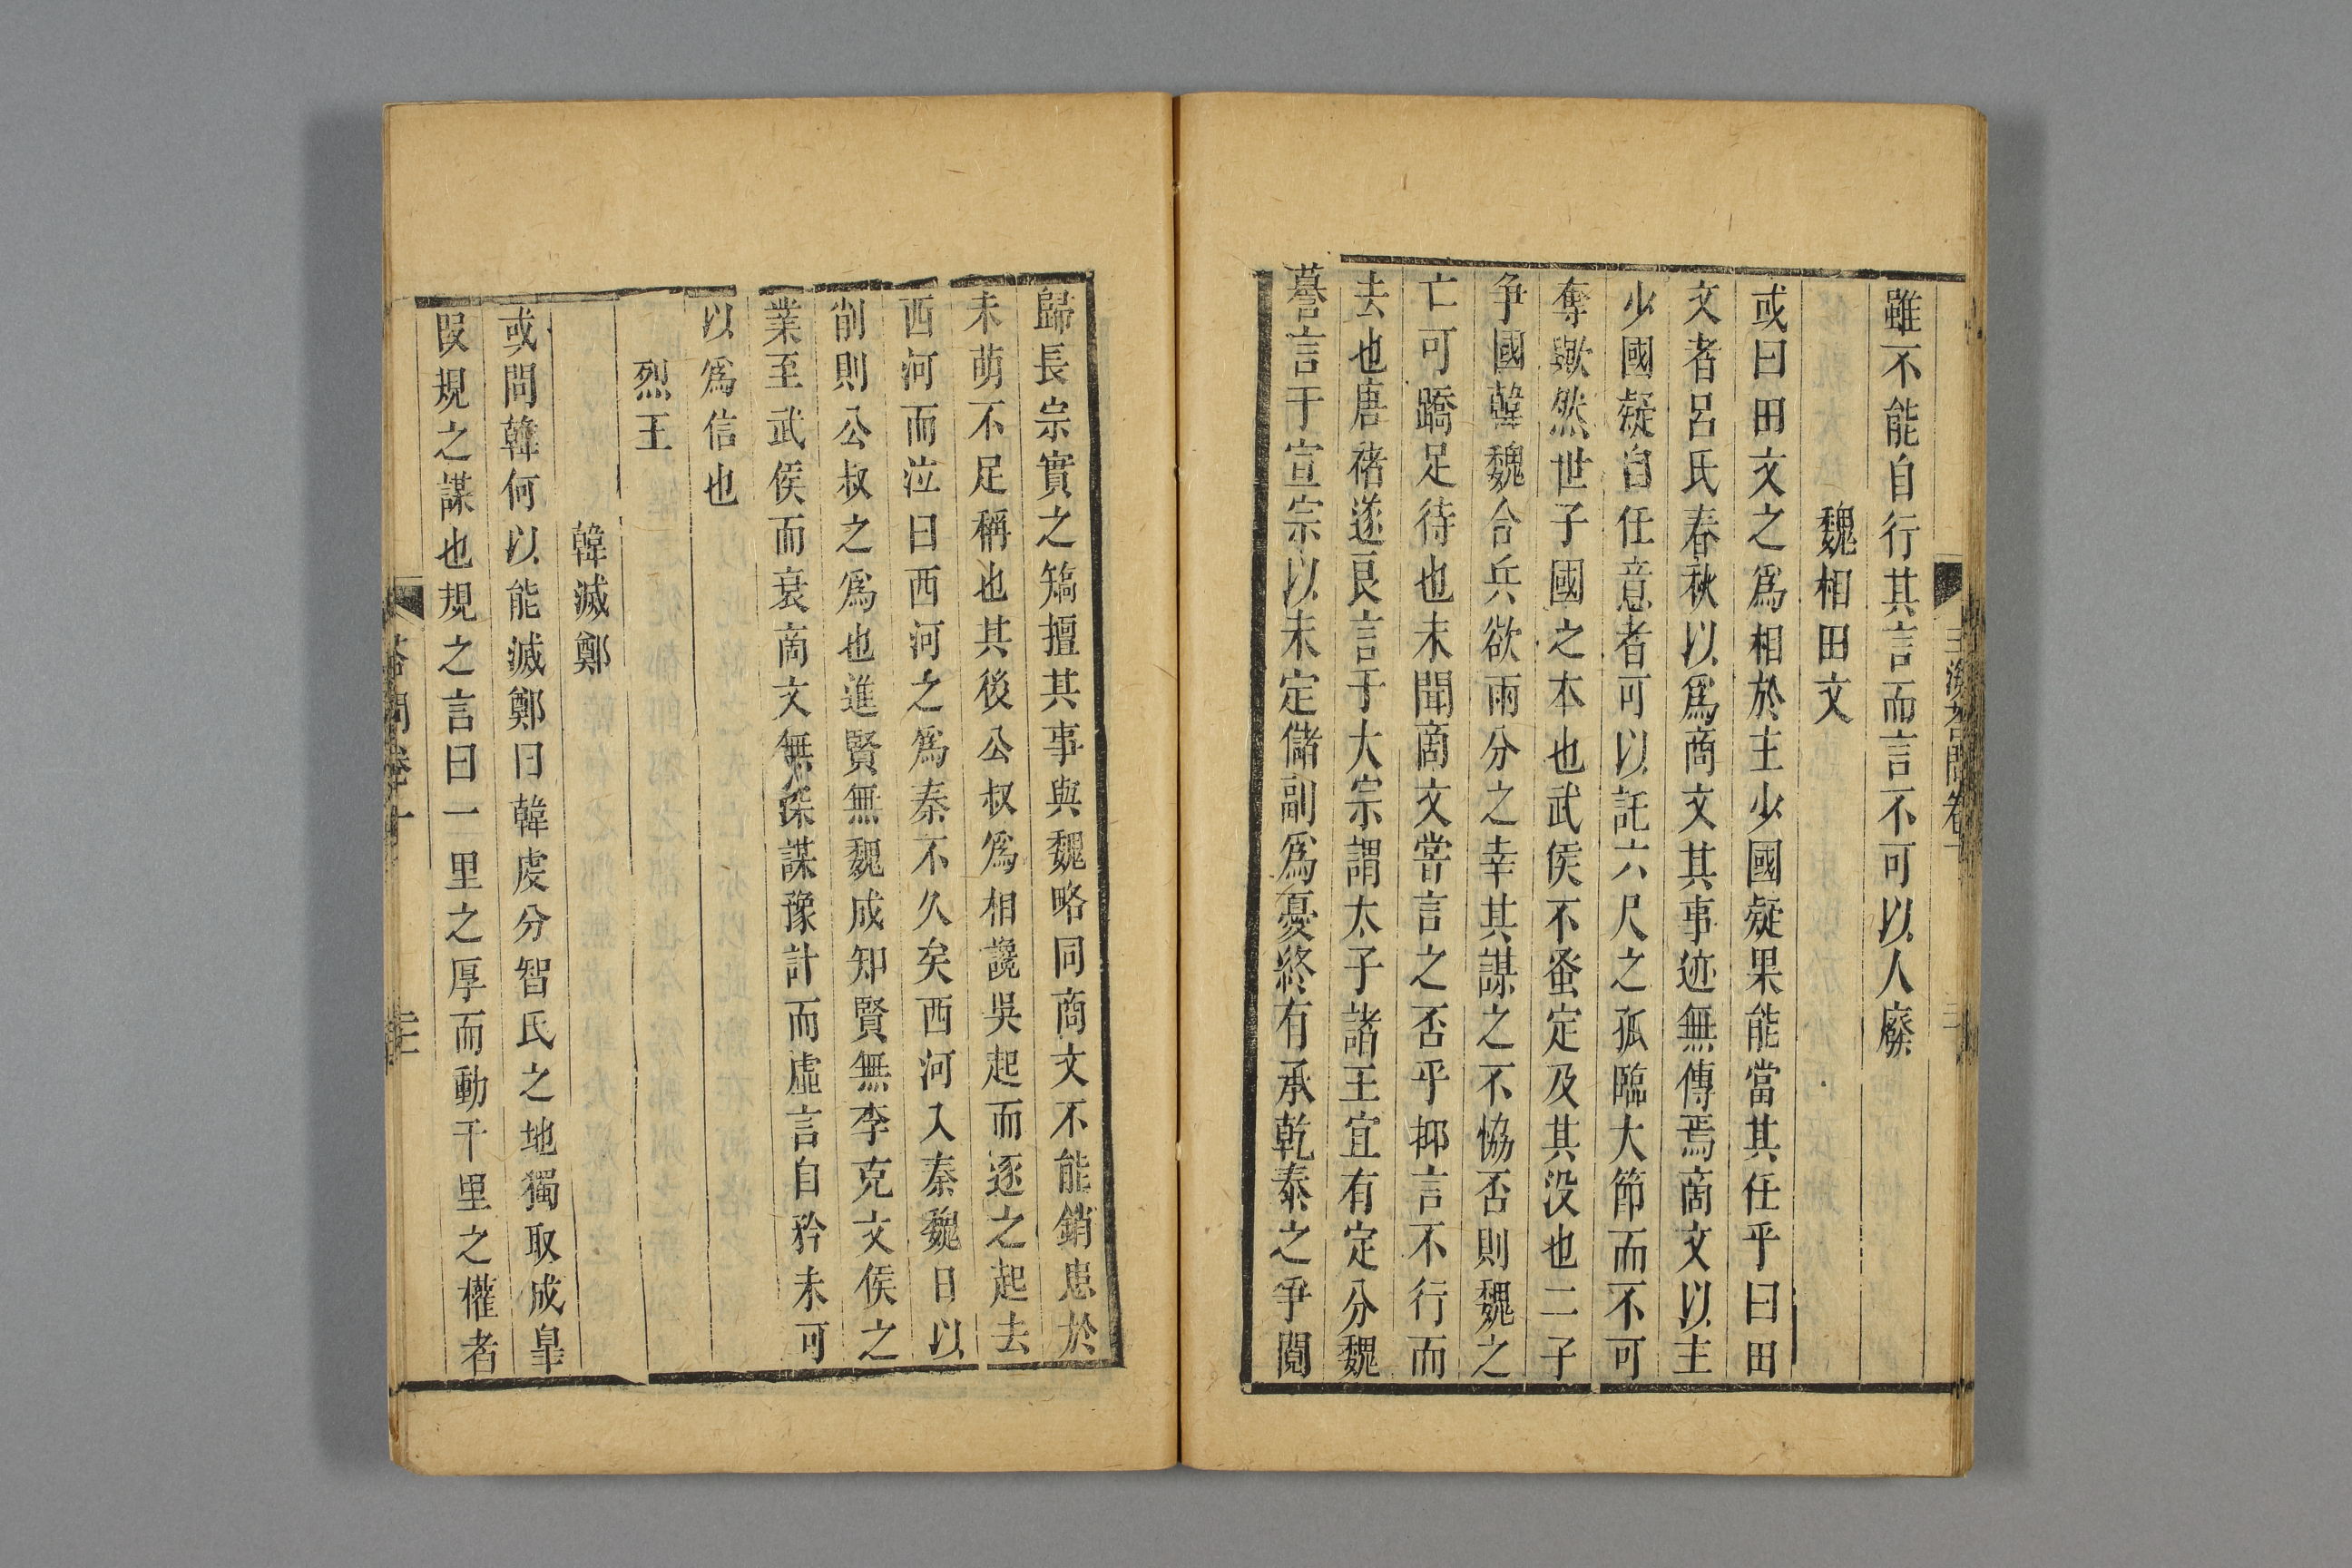 雖不能自行其言而言不可以人廢
魏相田文
或曰田文之爲相於主少國疑果能當其任乎曰田
文者呂氏春秋以爲商文其事迹無傳焉商文以主
少國疑自任意者可以託六尺之孤臨大節而不可
奪歟然世子國之本也武侯不蚤定及其没也二子
爭國韓魏合兵欲兩分之幸其謀之不恊否則魏之
亡可蹻足待也未聞商文嘗言之否乎抑言不行而
去也唐褚遂良言于大宗謂太子諸王宜有定分魏
謩言于宣宗以未定儲副爲憂終有承乾泰之爭閱
歸長宗實之矯擅其事與魏略同商文不能銷患於
未萌不足稱也其後公叔爲相讒吳起而逐之起去
西河而泣曰西河之爲秦不久矣西河入秦魏日以
削則公叔之爲也進賢無魏成知賢無李克文侯之
業至武侯而衰商文無深謀豫計而虛言自矜未可
以爲信也
烈王
韓滅鄭
或問韓何以能滅鄭曰韓虔分智氏之地獨取成臯
叚規之謀也規之言曰一里之厚而動千里之權者
答問卷十